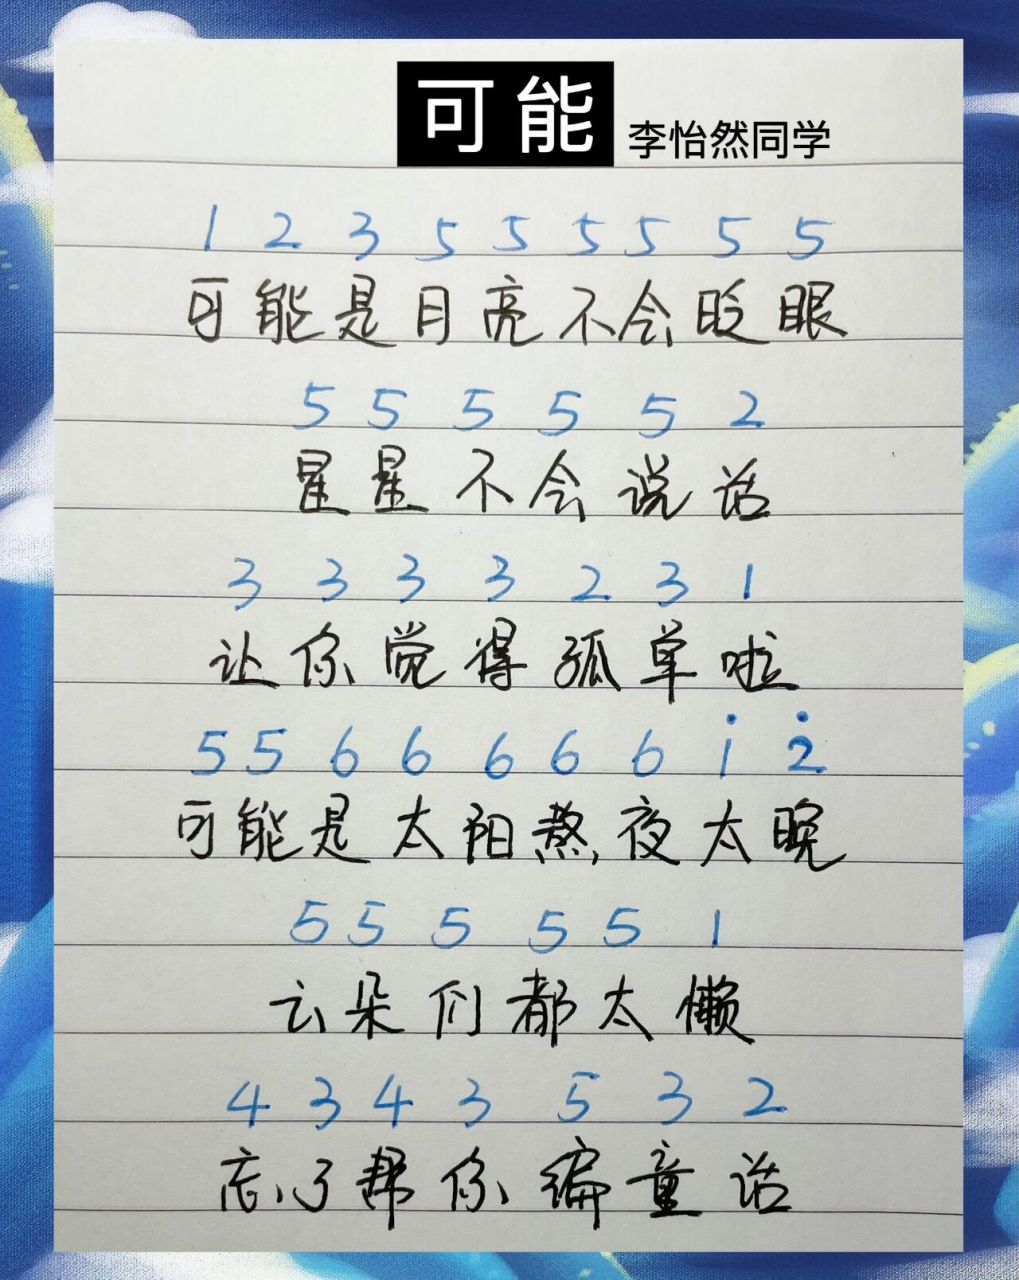 可能 李怡然同学
1 2 3 5 5 5 5 5 5
可能是月亮不会眨眼
5 5 5 5 5 2
星星不会说话
3 3 3 3 2 3 1
让你觉得孤单啦
5 5 6 6 6 6 6 i 2̇
可能是太阳熬夜太晚
5 5 5 5 5 1
云朵们都太懒
4 3 4 3 5 3 2
忘了帮你编童话